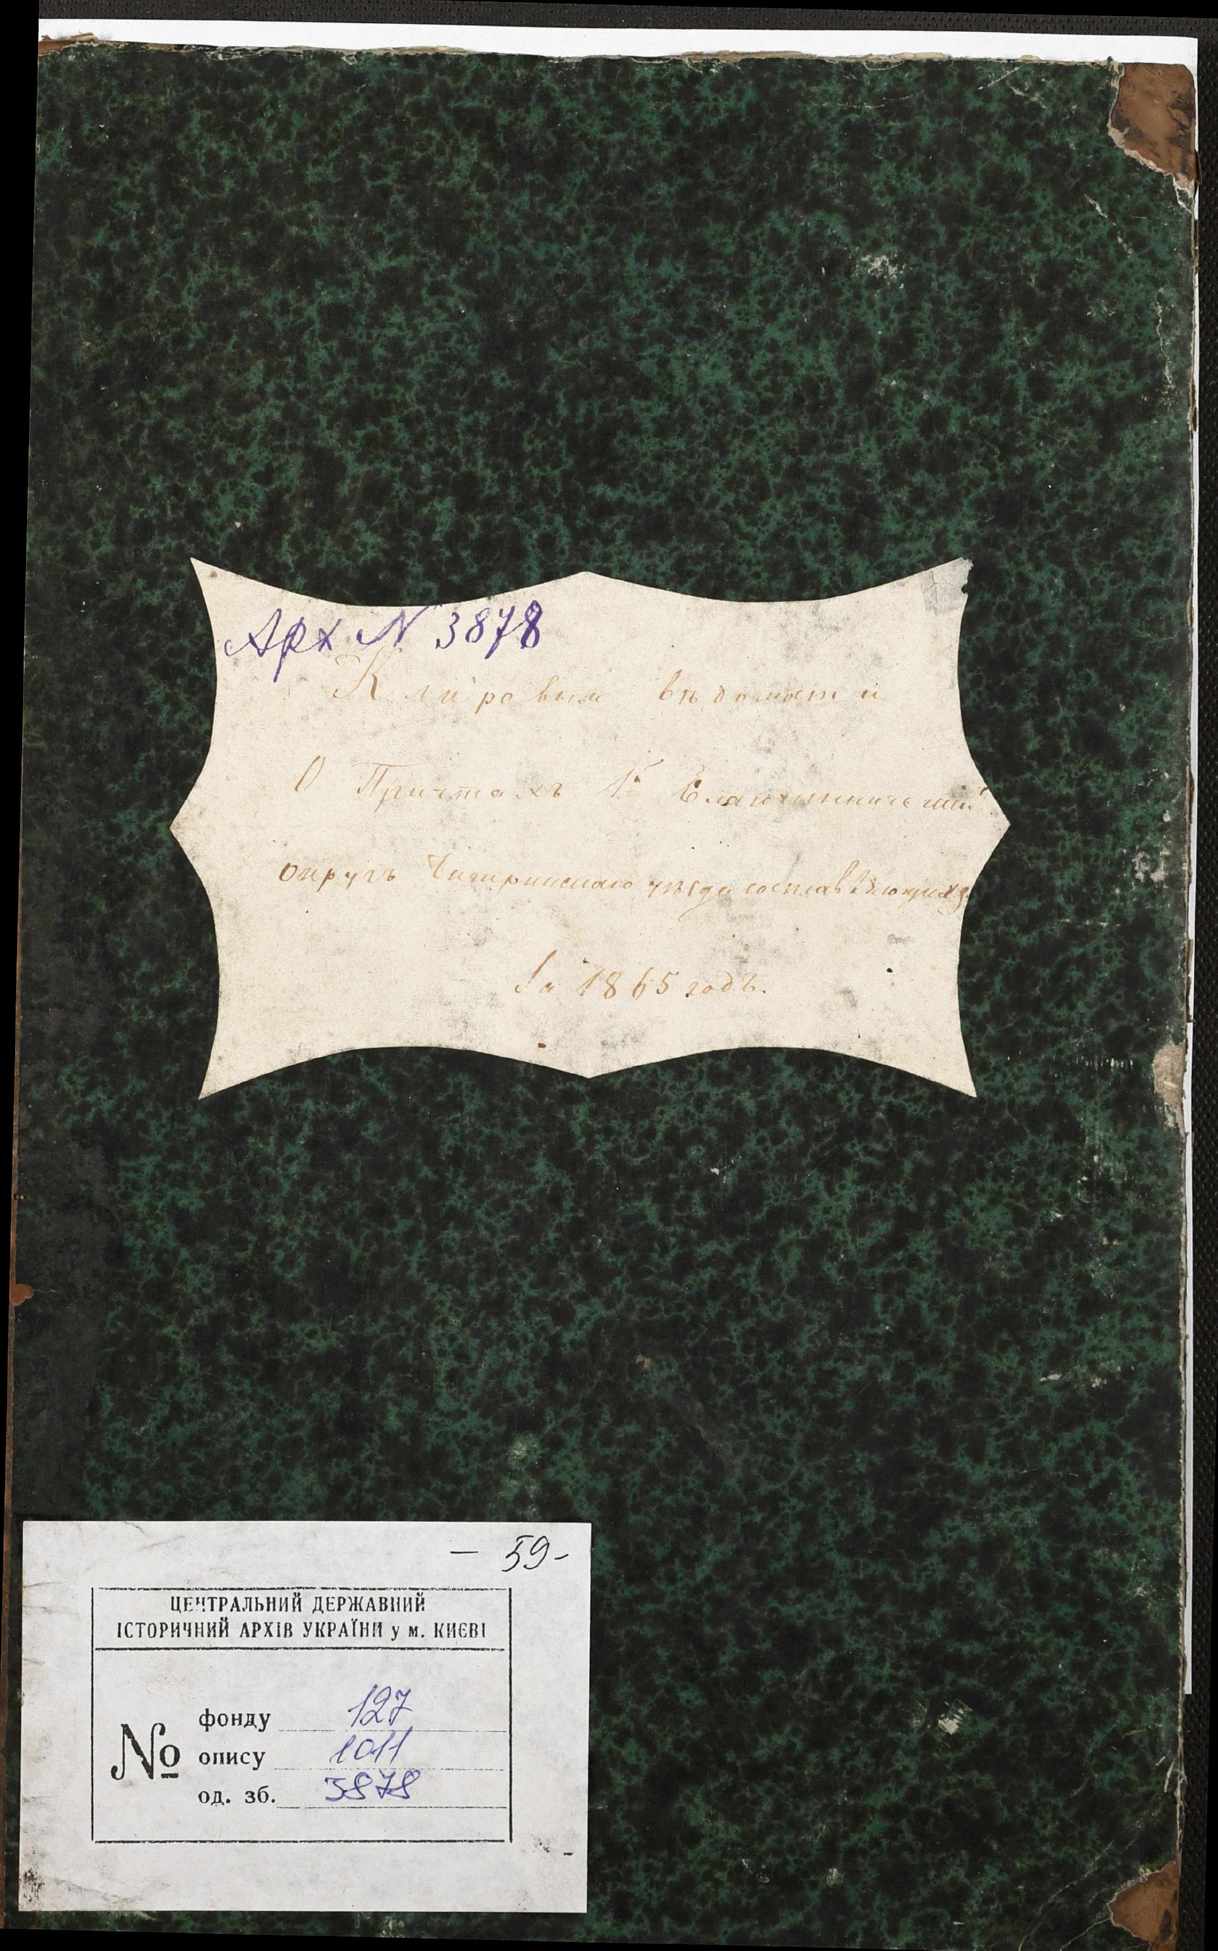 Арх № 3878
Клировыя вѣдомости
О Причтахъ 1й Благочинническій
округъ Чигиринскаго уѣзда составляющихъ
За 1865 годъ.
– 59 –
ЦЕНТРАЛЬНИЙ ДЕРЖАВНИЙ
ІСТОРИЧНИЙ АРХІВ УКРАЇНИ у м. КИЄВІ
№
фонду 127
опису 1011
од. зб. 3878